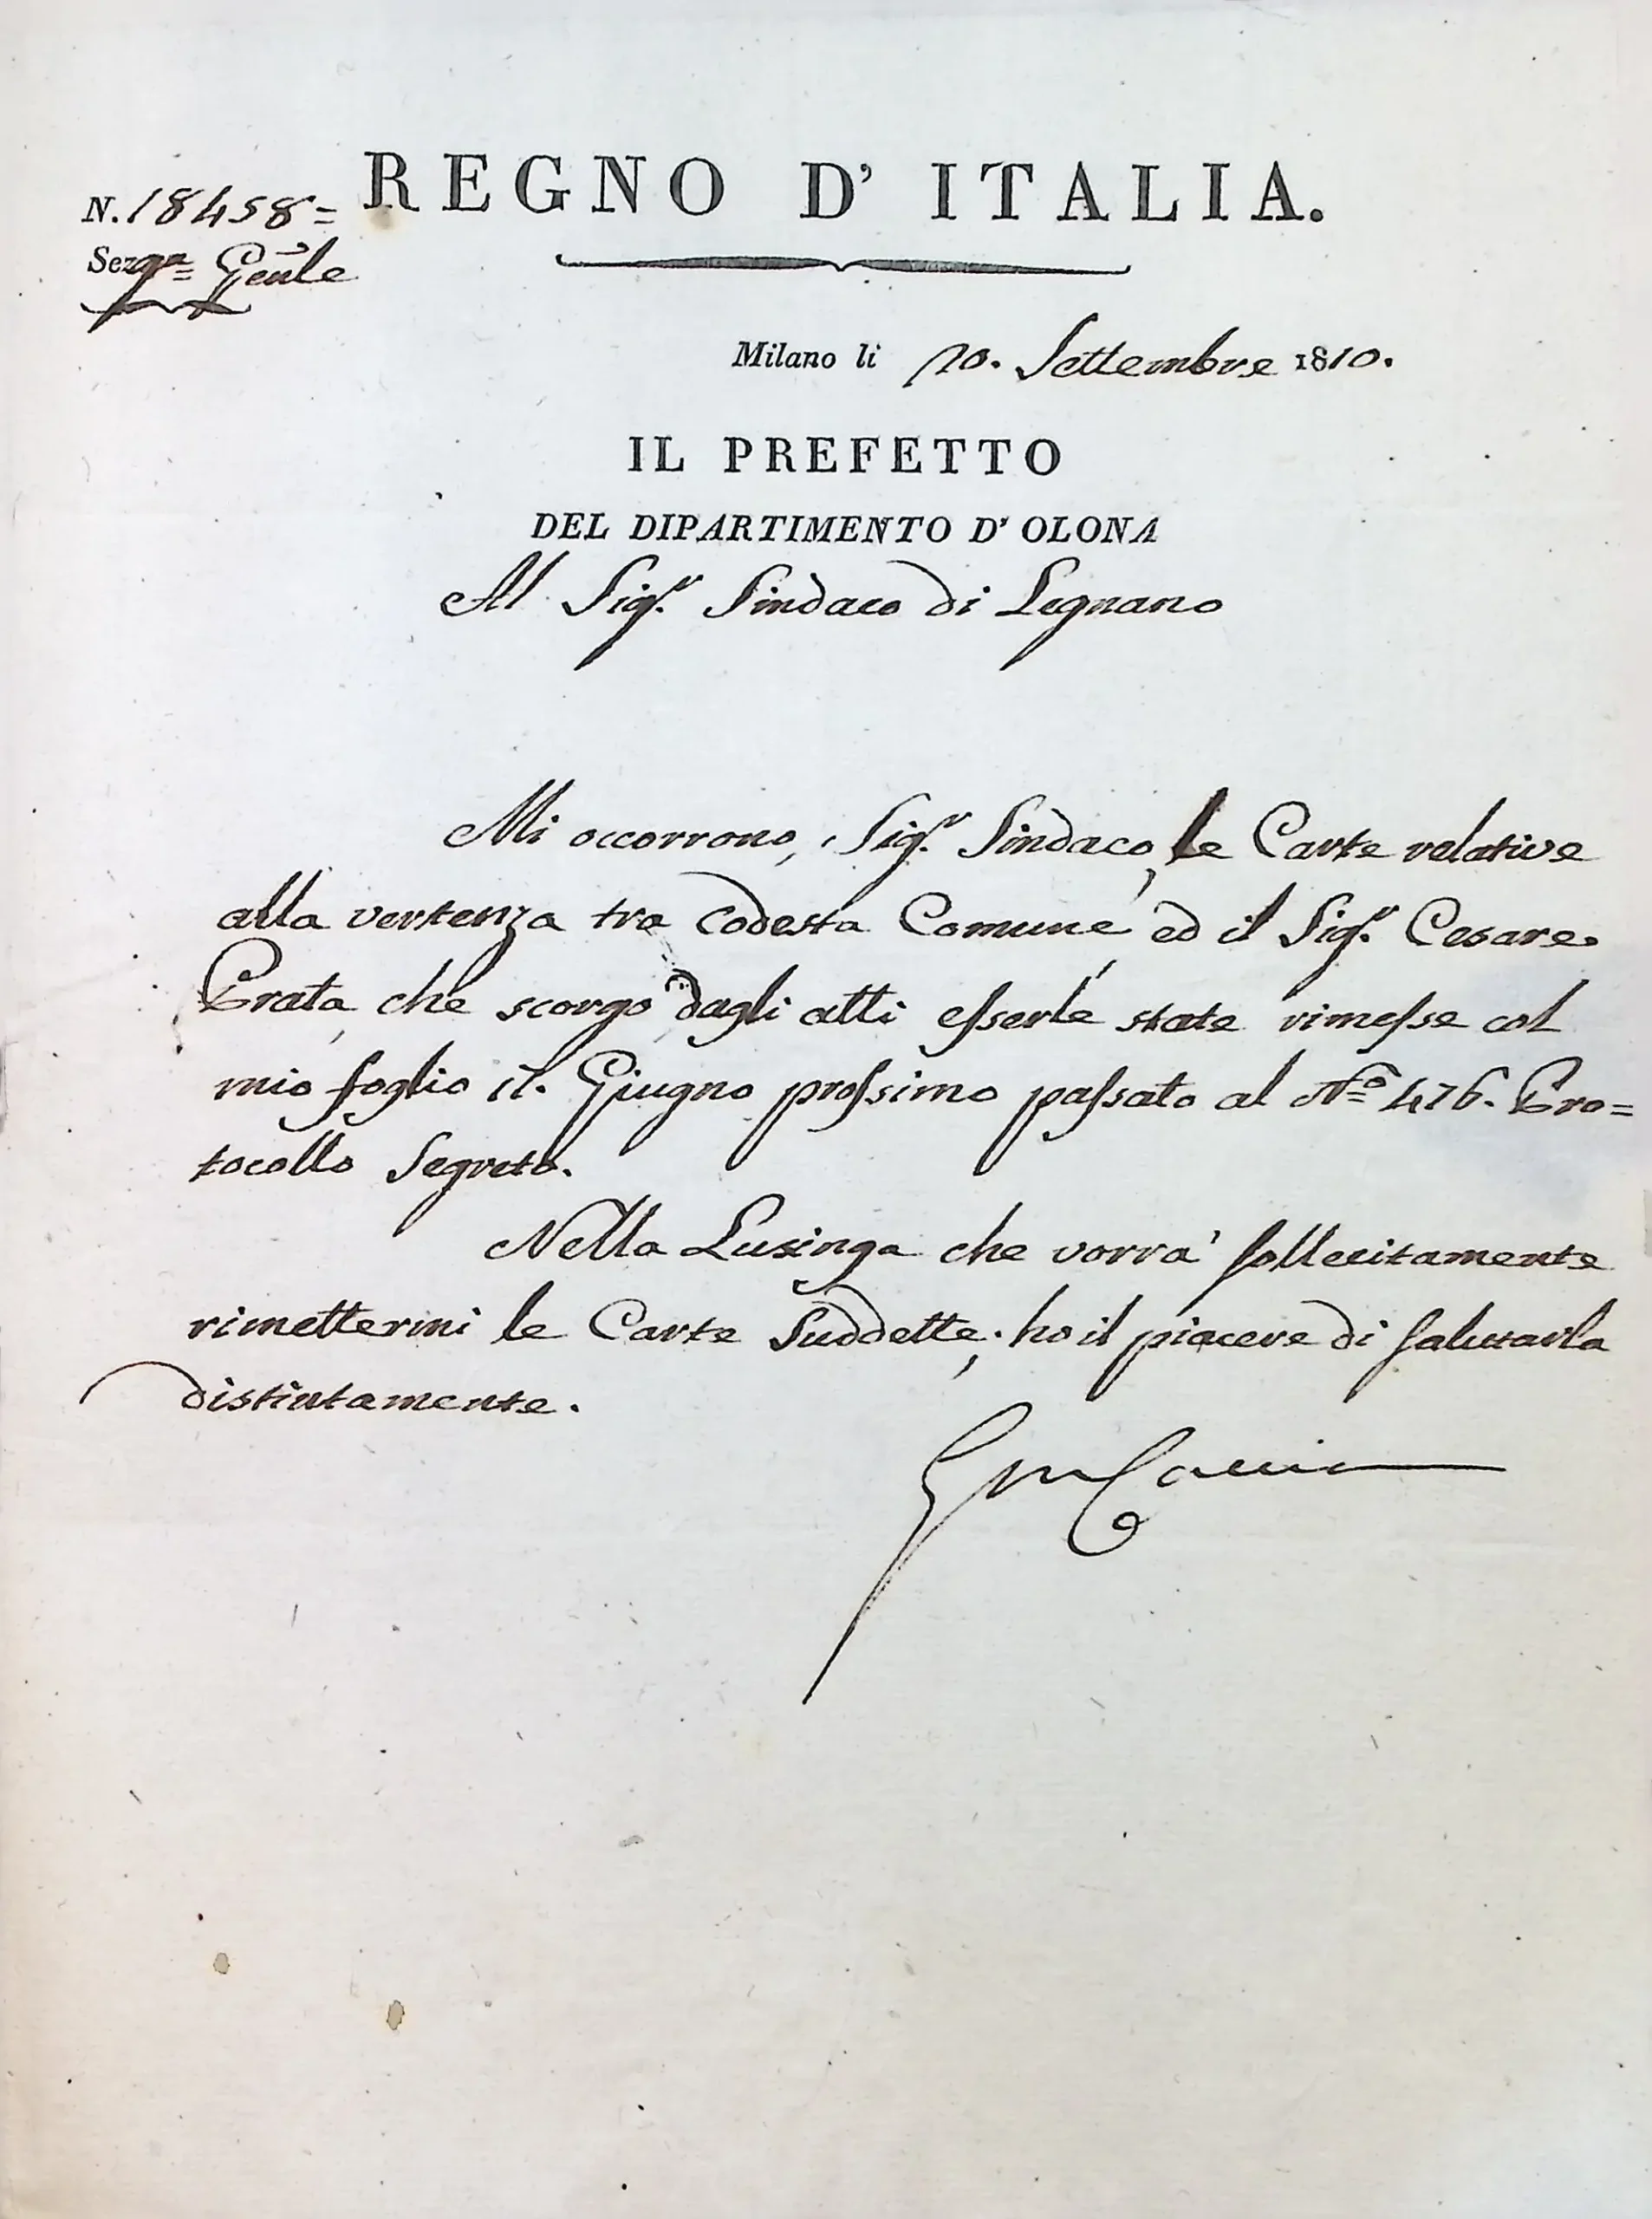 REGNO D' ITALIA.
N. 18458=
Sez.ne Gen̄le
Milano li 10. Settembre 1810.
IL PREFETTO
DEL DIPARTIMENTO D' OLONA
Al Sig.r Sindaco di Legnano
Mi occorrono, Sig.r Sindaco, le Carte relative
alla vertenza tra codesta Comune ed il Sig.r Cesare
Prata, che scorgo dagli atti esserle state rimesse col
mio foglio 11. Giugno prossimo passato al N.o 476. Pro=
tocollo Segreto.
Nella Lusinga che vorrà sollecitamente
rimettermi le Carte Suddette; ho il piacere di Salutarla
distintamente.